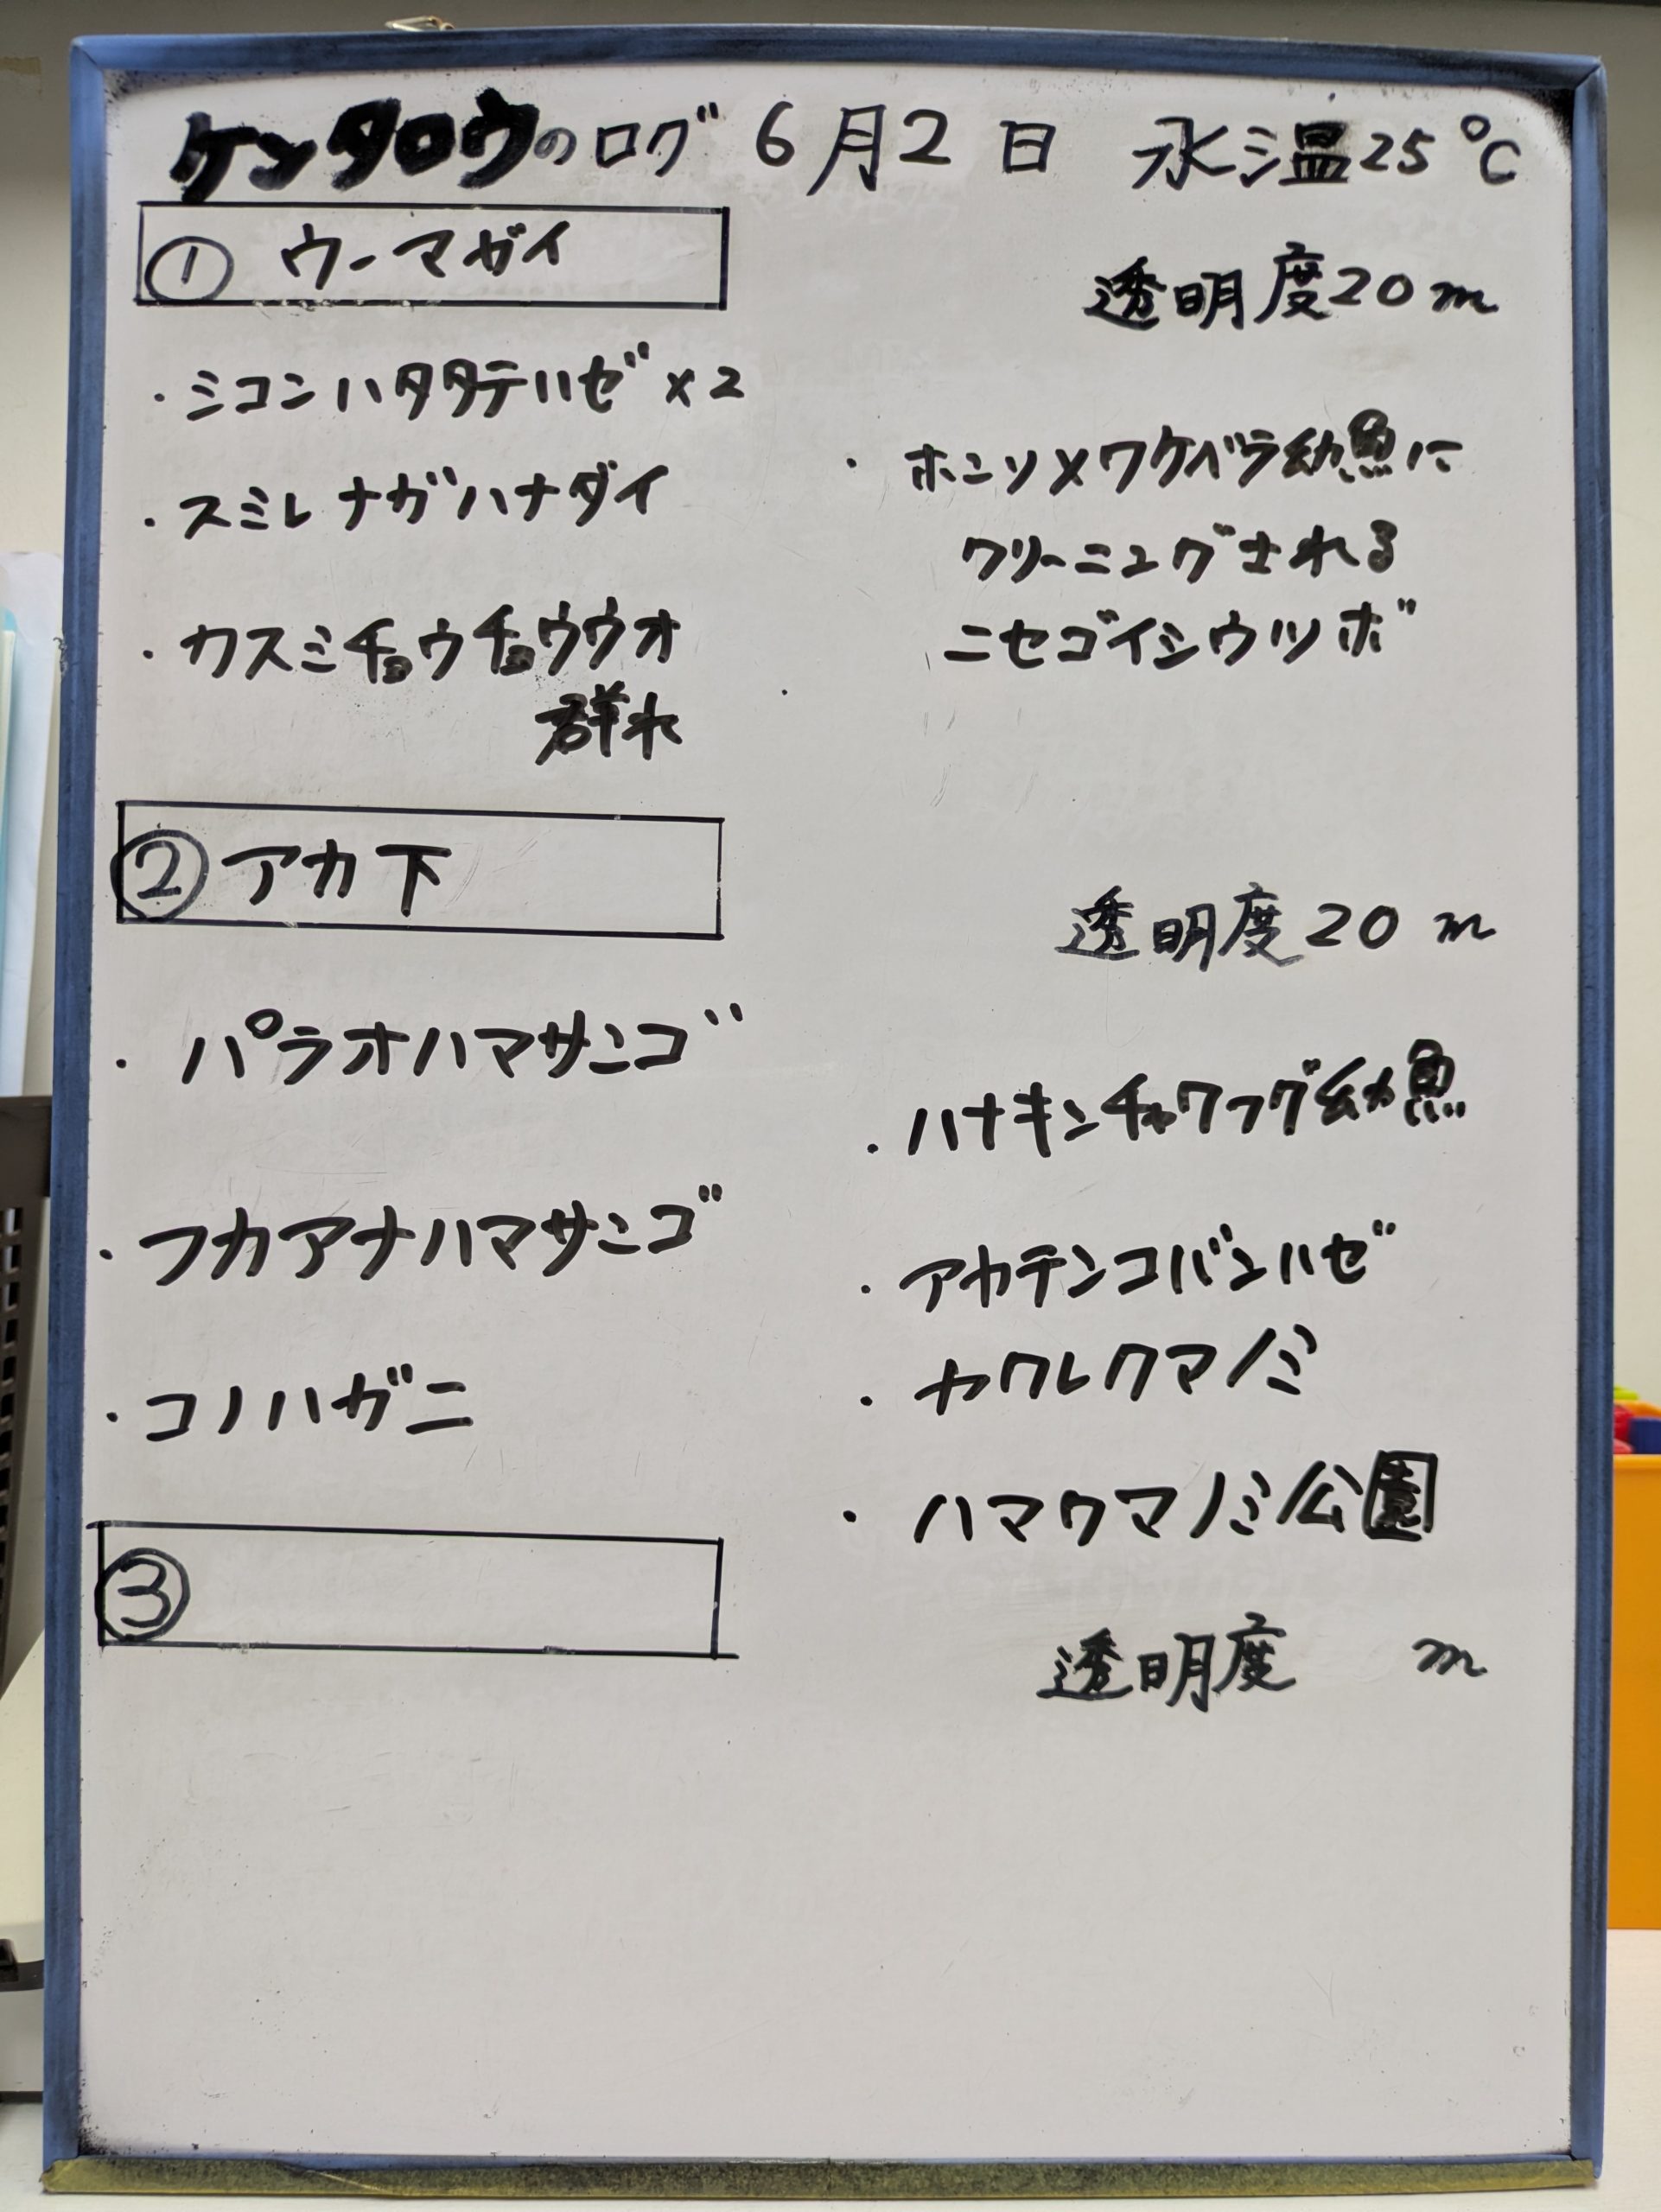 ケンタロウのログ 6月2日 水温25℃
① ウーマガイ
透明度20m
・ミコンハタタテハゼ×2
・スミレナガハナダイ
・カスミチョウチョウウオ
群れ
・ホンソメワケベラ幼魚に
クリーニングされる
ニセゴイシウツボ
② アカ下
透明度20m
・パラオハマサンゴ
・フカアナハマサンゴ
・コノハガニ
・ハナキンチャクフグ幼魚
・アカテンコバンハゼ
・カクレクマノミ
・ハマクマノミ公園
③
透明度 m